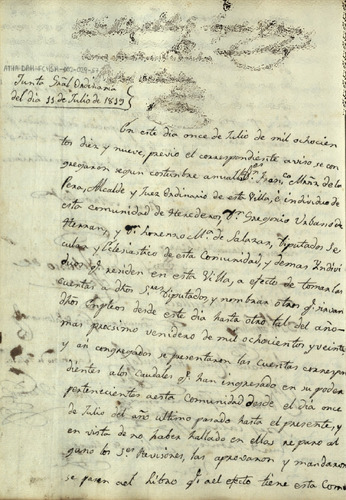 Junta Gral Ordinaria
del dia 11 de Julio de 1819
En este dia once de Julio de mil ochocien
tos diez y nueve, previo el correspondiente aviso se con
gregaron segun costumbre anual Dn. Franco. Mñrz de la
Pera, Alcalde y Juez Ordinario de esta Villa, é individuo de
esta comunidad de Herederos, Dn. Gregorio Urbano de
Herran, y Dn. Lorenzo Ma. de Salazar, Diputados Se
cular, y Eclesiastico de esta Comunidad, y demas Yndivi
duos qe. residen en esta Villa, a efecto de tomar las
cuentas a dhos Sres Diputados, y nombrar otros qe. sirvan
dhos Empleos desde este dia hasta otro tal del año
mas procsimo venidero de mil ochocientos y veinte
y asi congregados se presentaron las cuentas correspon
dientes a los Caudales qe. han ingresado en su poder
pertenecientes a esta Comunidad desde el dia once
de Julio del año ultimo pasado hasta el presente, y
en vista de no haber hallado en ellas reparo al
guno los Sres. Revisores, las aprovaron y mandaron
se pasen al Libro qe. al efecto tiene esta Comu